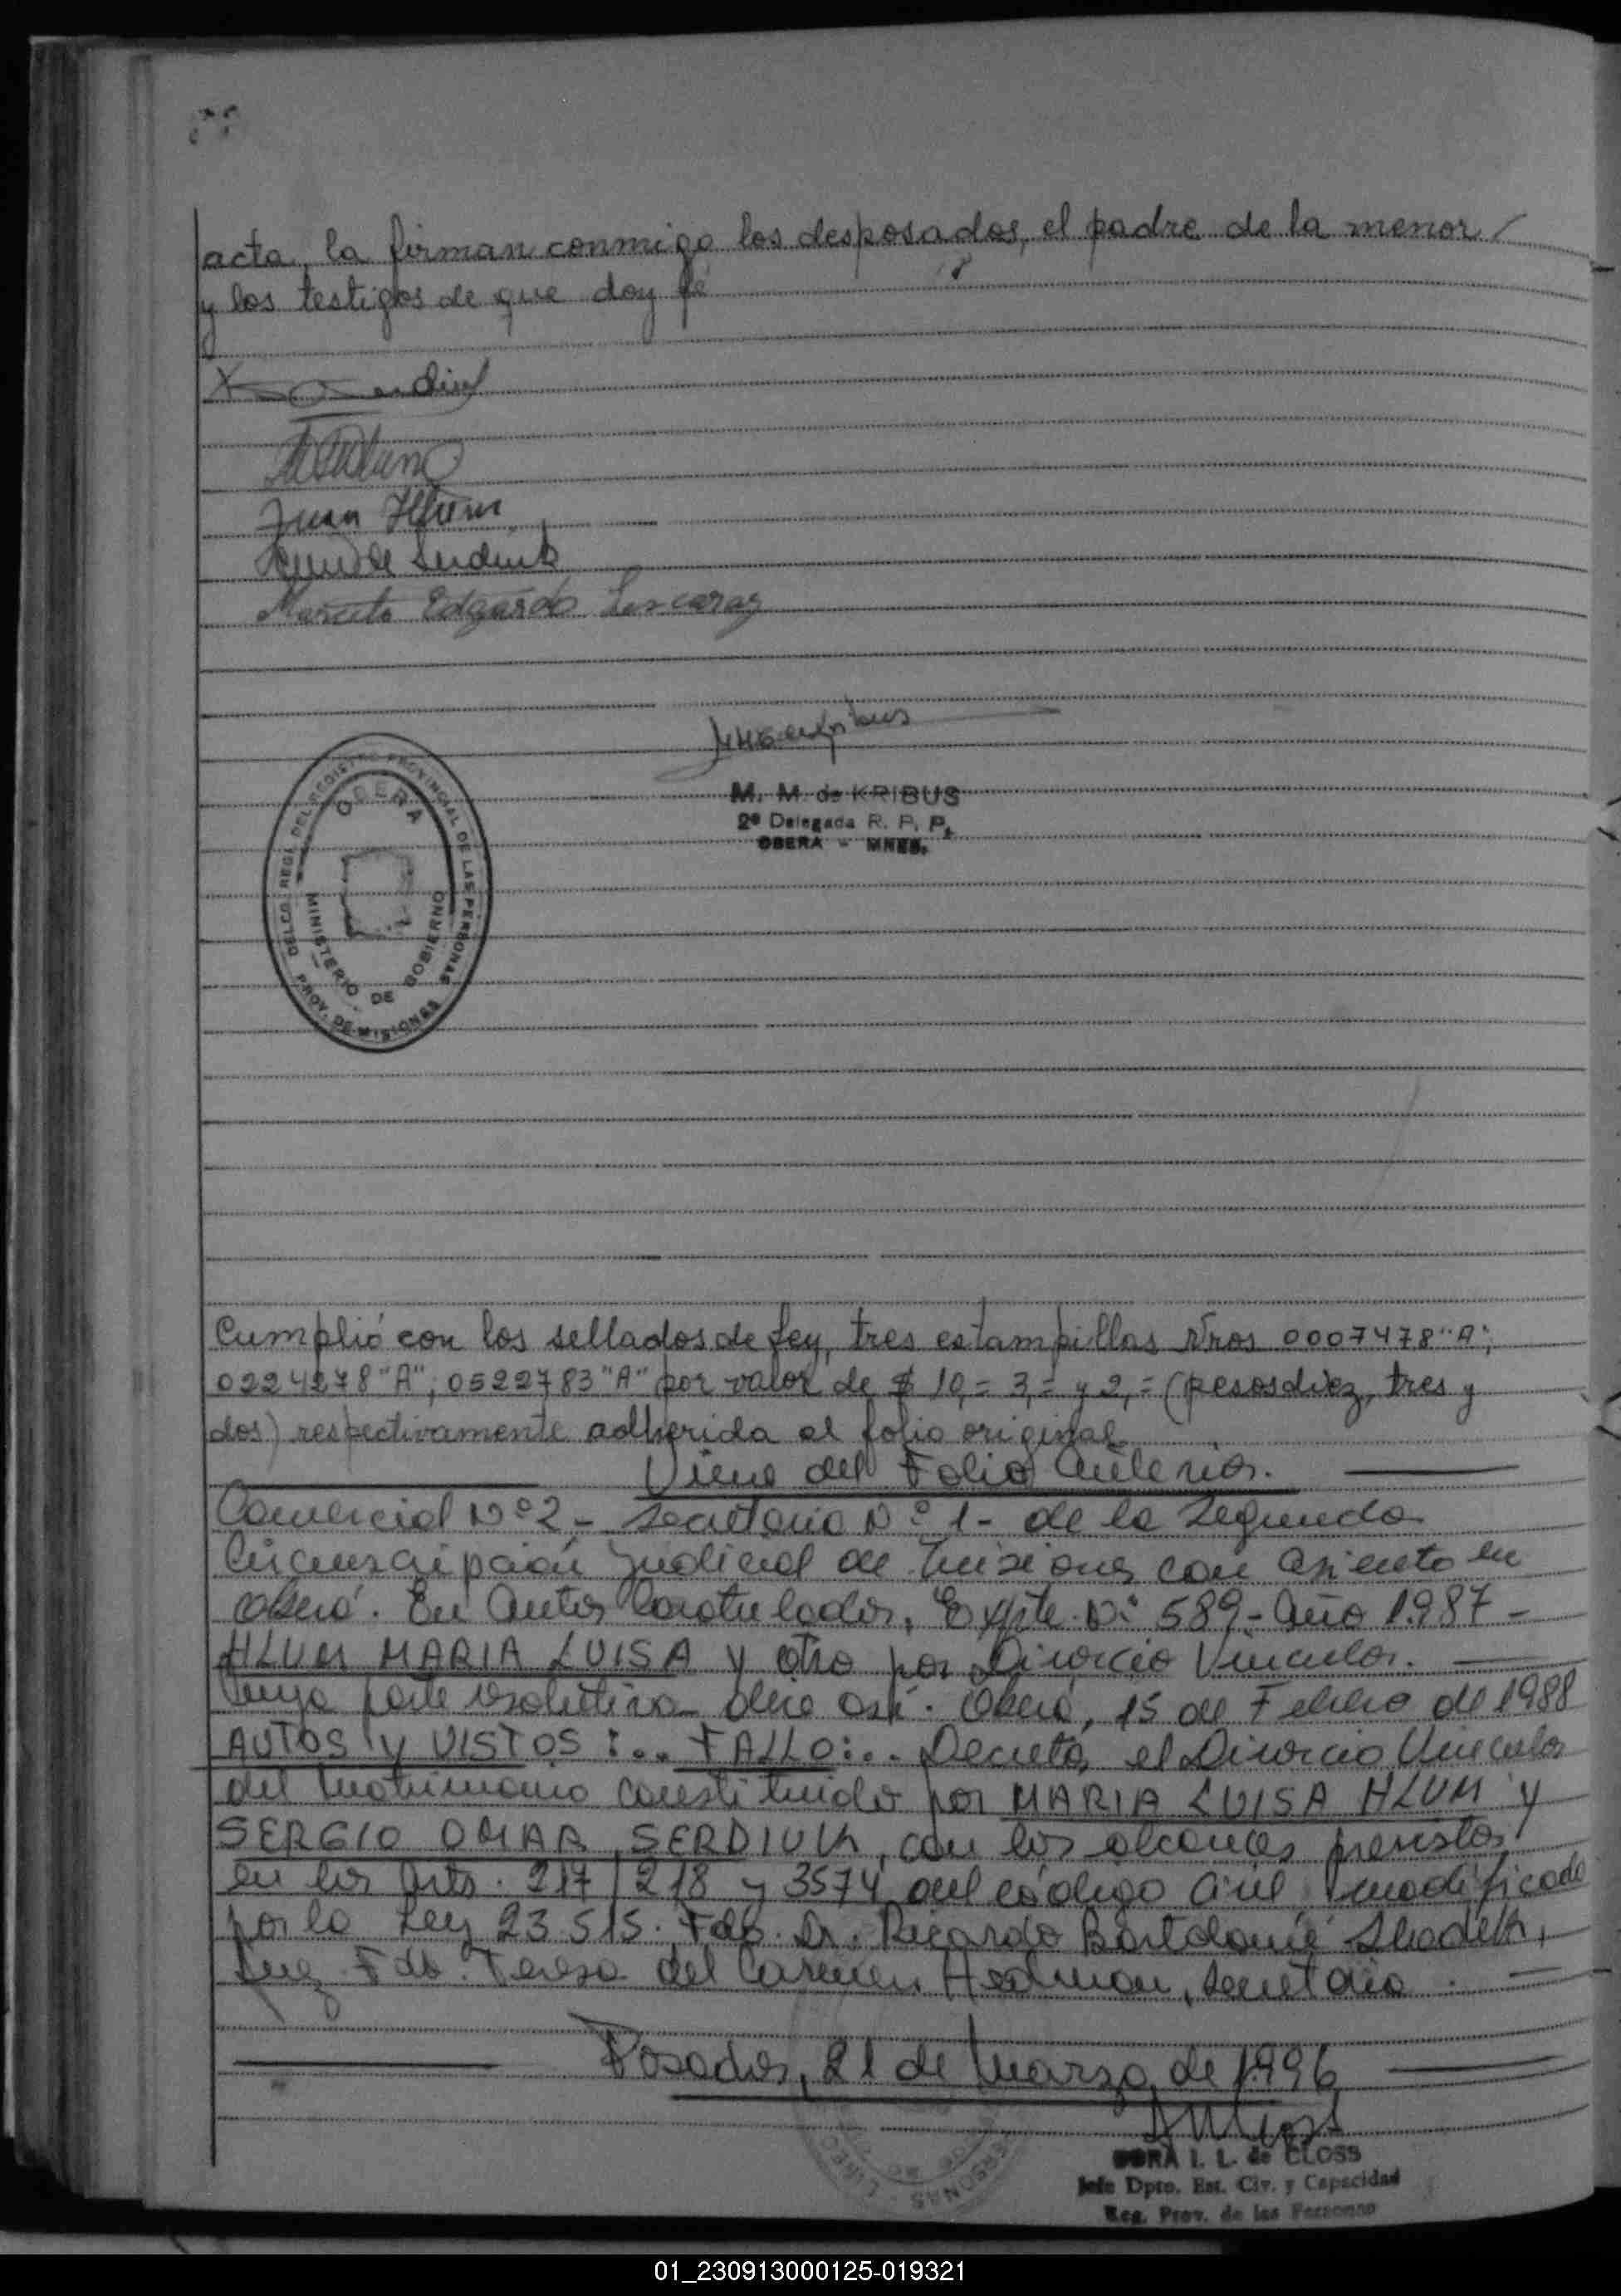 acta, la firman conmigo los desposados, el padre de la menor /
y los testigos de que doy fé
Juan Hlum
Marcelo Edgardo Lescaray
M. M. de KRIBUS
2ª Delegada R. P. P.
OBERA - MNES.
DELEG. REGI. DEL REGISTRO PROVINCIAL DE LAS PERSONAS
OBERA
MINISTERIO DE GOBIERNO
PROV. DE MISIONES
Cumplió con los sellados de Ley, tres estampillas Nros 0007478 "A";
0224278 "A"; 0522783 "A" por valor de $ 10,= 3,= y 2,= (pesos diez, tres y
dos) respectivamente adherida al folio original
Viene del Folio Anterior.
Comercial Nº 2 - Secretaria Nº 1 - de la Segunda
Circunscripción Judicial de Misiones con asiento en
Oberá. En Autos Caratulados, Expte. Nº 589 - Año 1.987 -
HLUM MARIA LUISA y otro por Divorcio Vincular.
Cuya parte resolutiva dice así. Oberá, 15 de Febrero de 1988
AUTOS y VISTOS :.. FALLO:.. Decreto, el Divorcio Vincular
del Matrimonio constituido por MARIA LUISA HLUM y
SERGIO OMAR SERDIUK, con los alcances previstos
en los Arts. 217/218 y 3574 del código Civil modificado
por la Ley 23.515. Fdo. Dr. Ricardo Bartolomé
Juez. Fdo. Teresa del Carmen Hedman, Secretaria.
Posadas, 21 de Marzo de 1.996
I. L. de CLOSS
Jefe Dpto. Est. Civ. y Capacidad
Reg. Prov. de las Personas
01_230913000125-019321